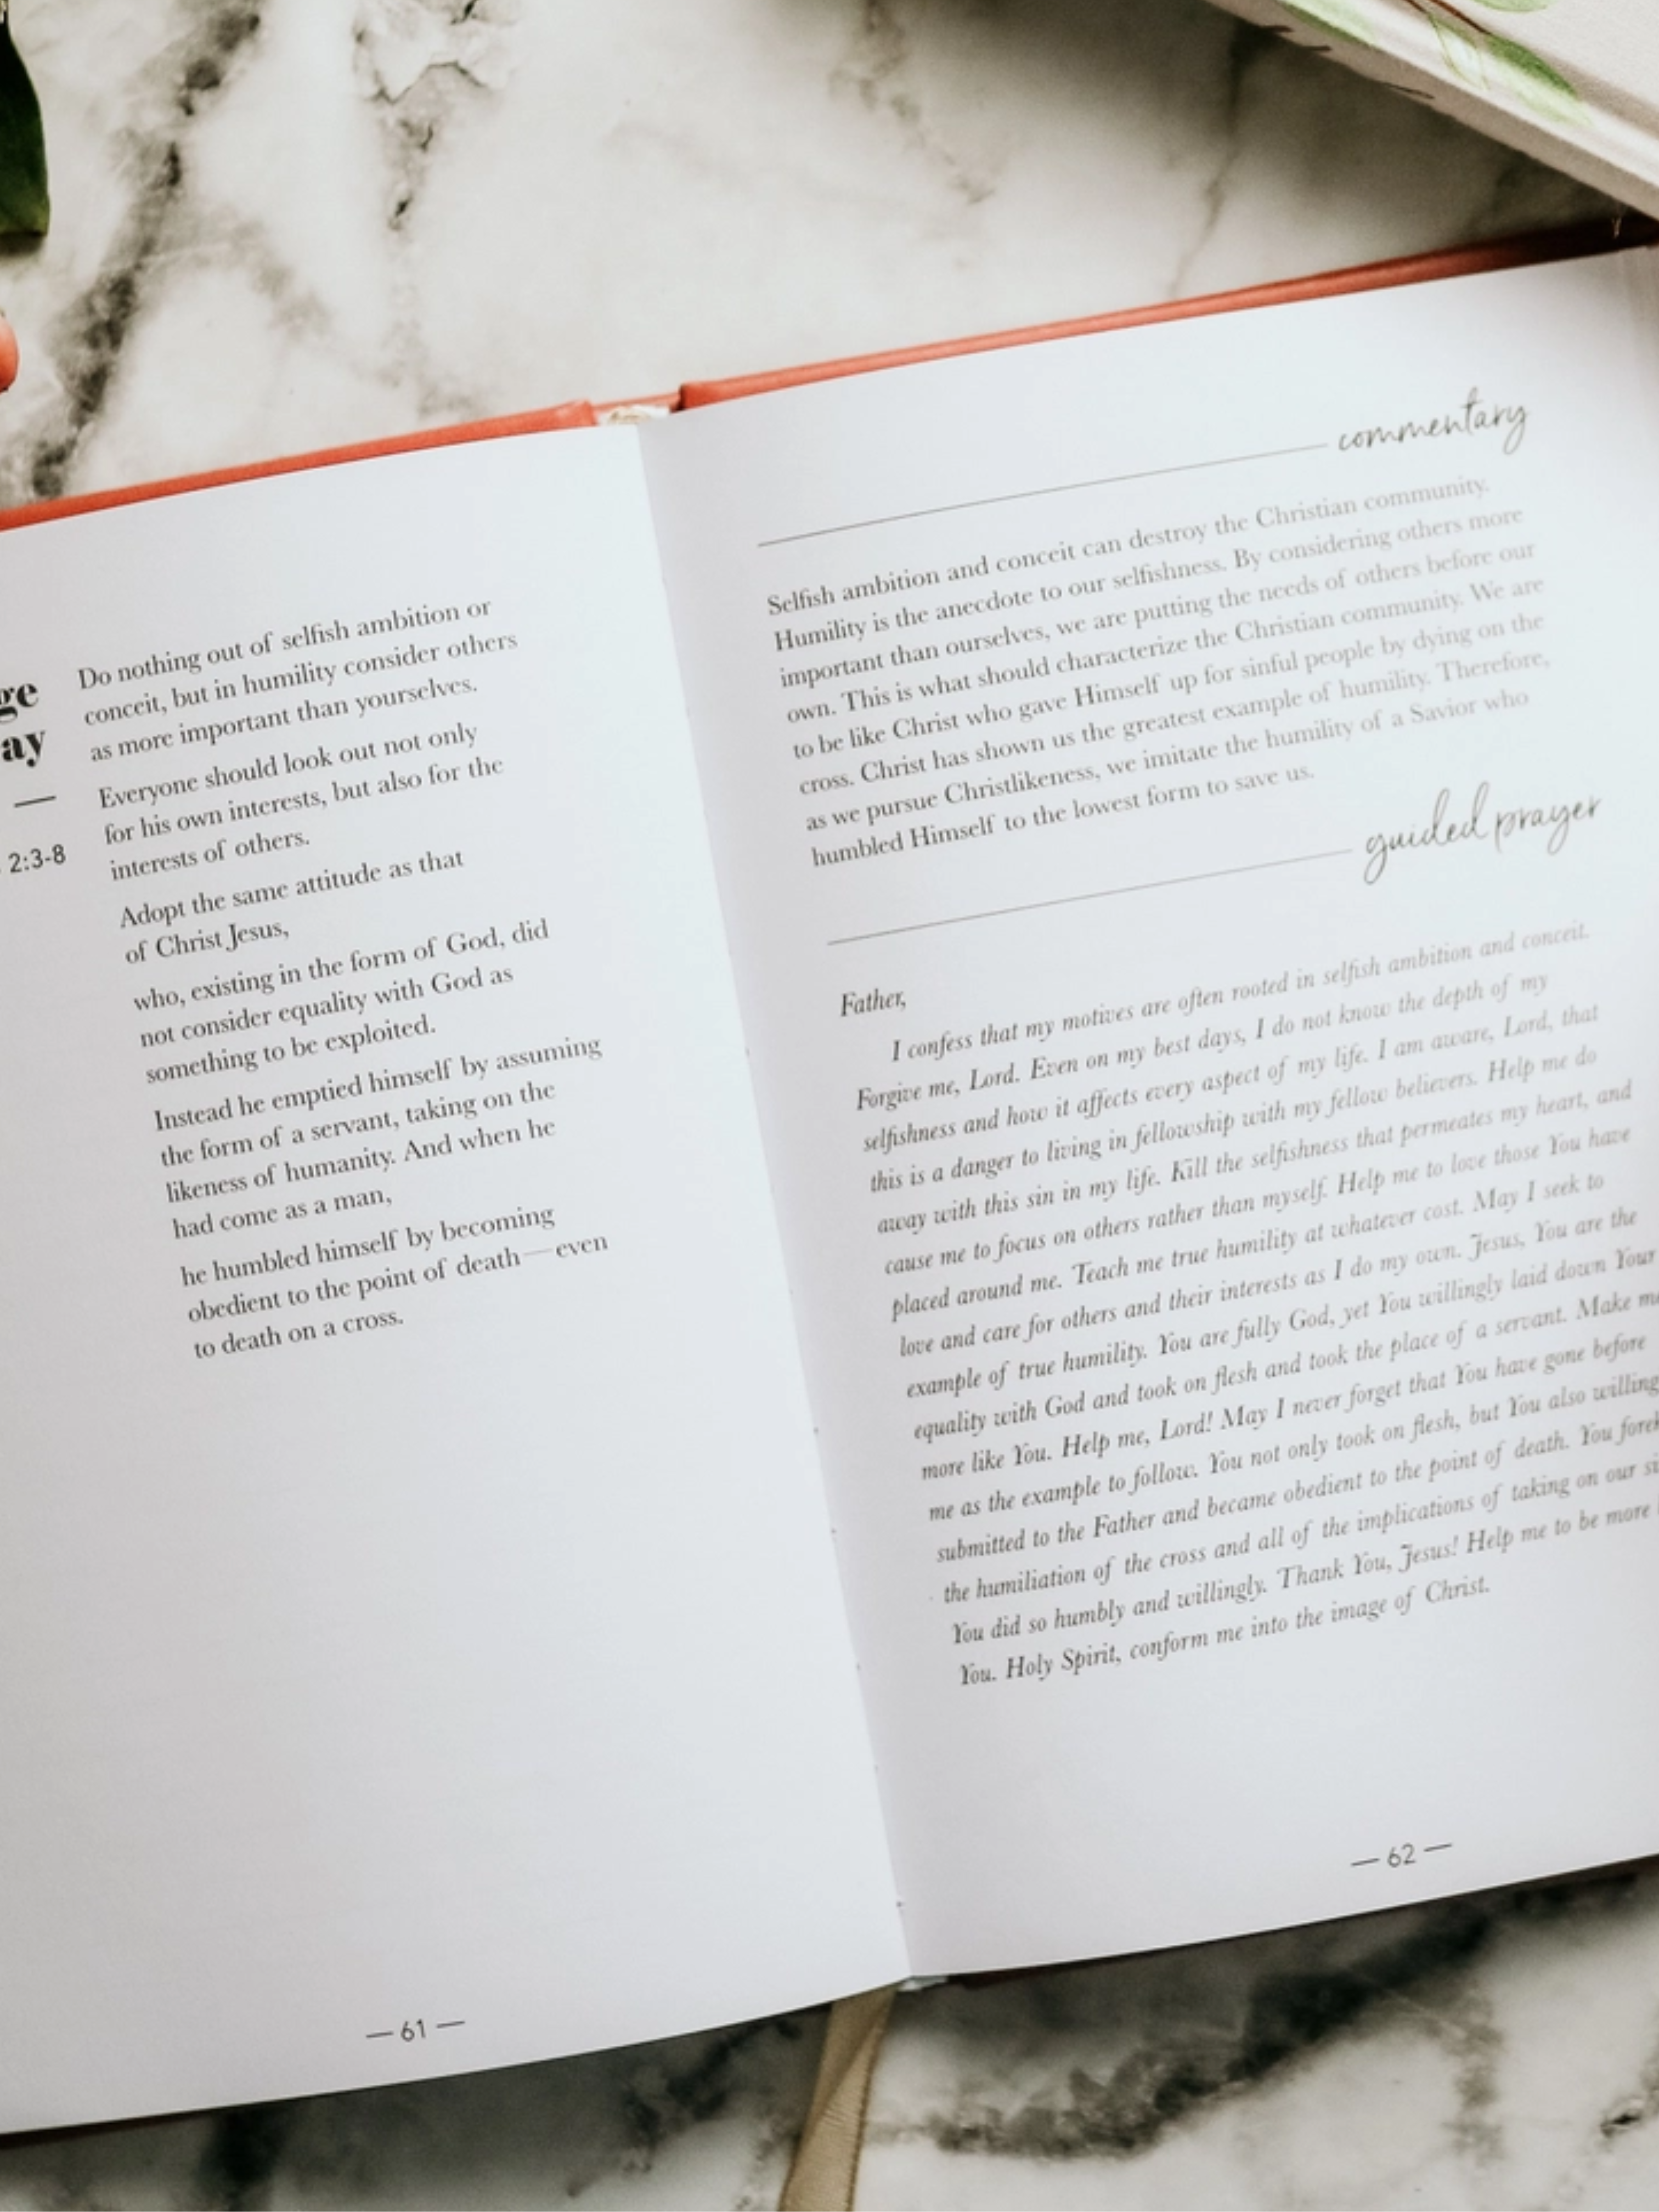 ge
ay
2:3-8
Do nothing out of selfish ambition or
conceit, but in humility consider others
as more important than yourselves.
Everyone should look out not only
for his own interests, but also for the
interests of others.
Adopt the same attitude as that
of Christ Jesus,
who, existing in the form of God, did
not consider equality with God as
something to be exploited.
Instead he emptied himself by assuming
the form of a servant, taking on the
likeness of humanity. And when he
had come as a man,
he humbled himself by becoming
obedient to the point of death—even
to death on a cross.
— 61 —
commentary
Selfish ambition and conceit can destroy the Christian community.
Humility is the anecdote to our selfishness. By considering others more
important than ourselves, we are putting the needs of others before our
own. This is what should characterize the Christian community. We are
to be like Christ who gave Himself up for sinful people by dying on the
cross. Christ has shown us the greatest example of humility. Therefore,
as we pursue Christlikeness, we imitate the humility of a Savior who
humbled Himself to the lowest form to save us.
guided prayer
Father,
I confess that my motives are often rooted in selfish ambition and conceit.
Forgive me, Lord. Even on my best days, I do not know the depth of my
selfishness and how it affects every aspect of my life. I am aware, Lord, that
this is a danger to living in fellowship with my fellow believers. Help me do
away with this sin in my life. Kill the selfishness that permeates my heart, and
cause me to focus on others rather than myself. Help me to love those You have
placed around me. Teach me true humility at whatever cost. May I seek to
love and care for others and their interests as I do my own. Jesus, You are the
example of true humility. You are fully God, yet You willingly laid down Your
equality with God and took on flesh and took the place of a servant. Make me
more like You. Help me, Lord! May I never forget that You have gone before
me as the example to follow. You not only took on flesh, but You also willing
submitted to the Father and became obedient to the point of death. You forek
the humiliation of the cross and all of the implications of taking on our si
You did so humbly and willingly. Thank You, Jesus! Help me to be more
You. Holy Spirit, conform me into the image of Christ.
— 62 —